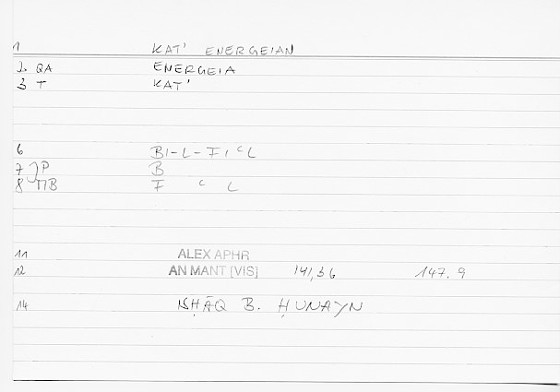 1 KAT' ENERGEIAN
2 QA ENERGEIA
3 T KAT'
6 BI-L-FIʿL
7 P B
8 ΠB F ʿ L
11 ALEX APHR
12 AN MANT [VIS] 141,36 147.9
14 ISḤĀQ B. ḤUNAYN